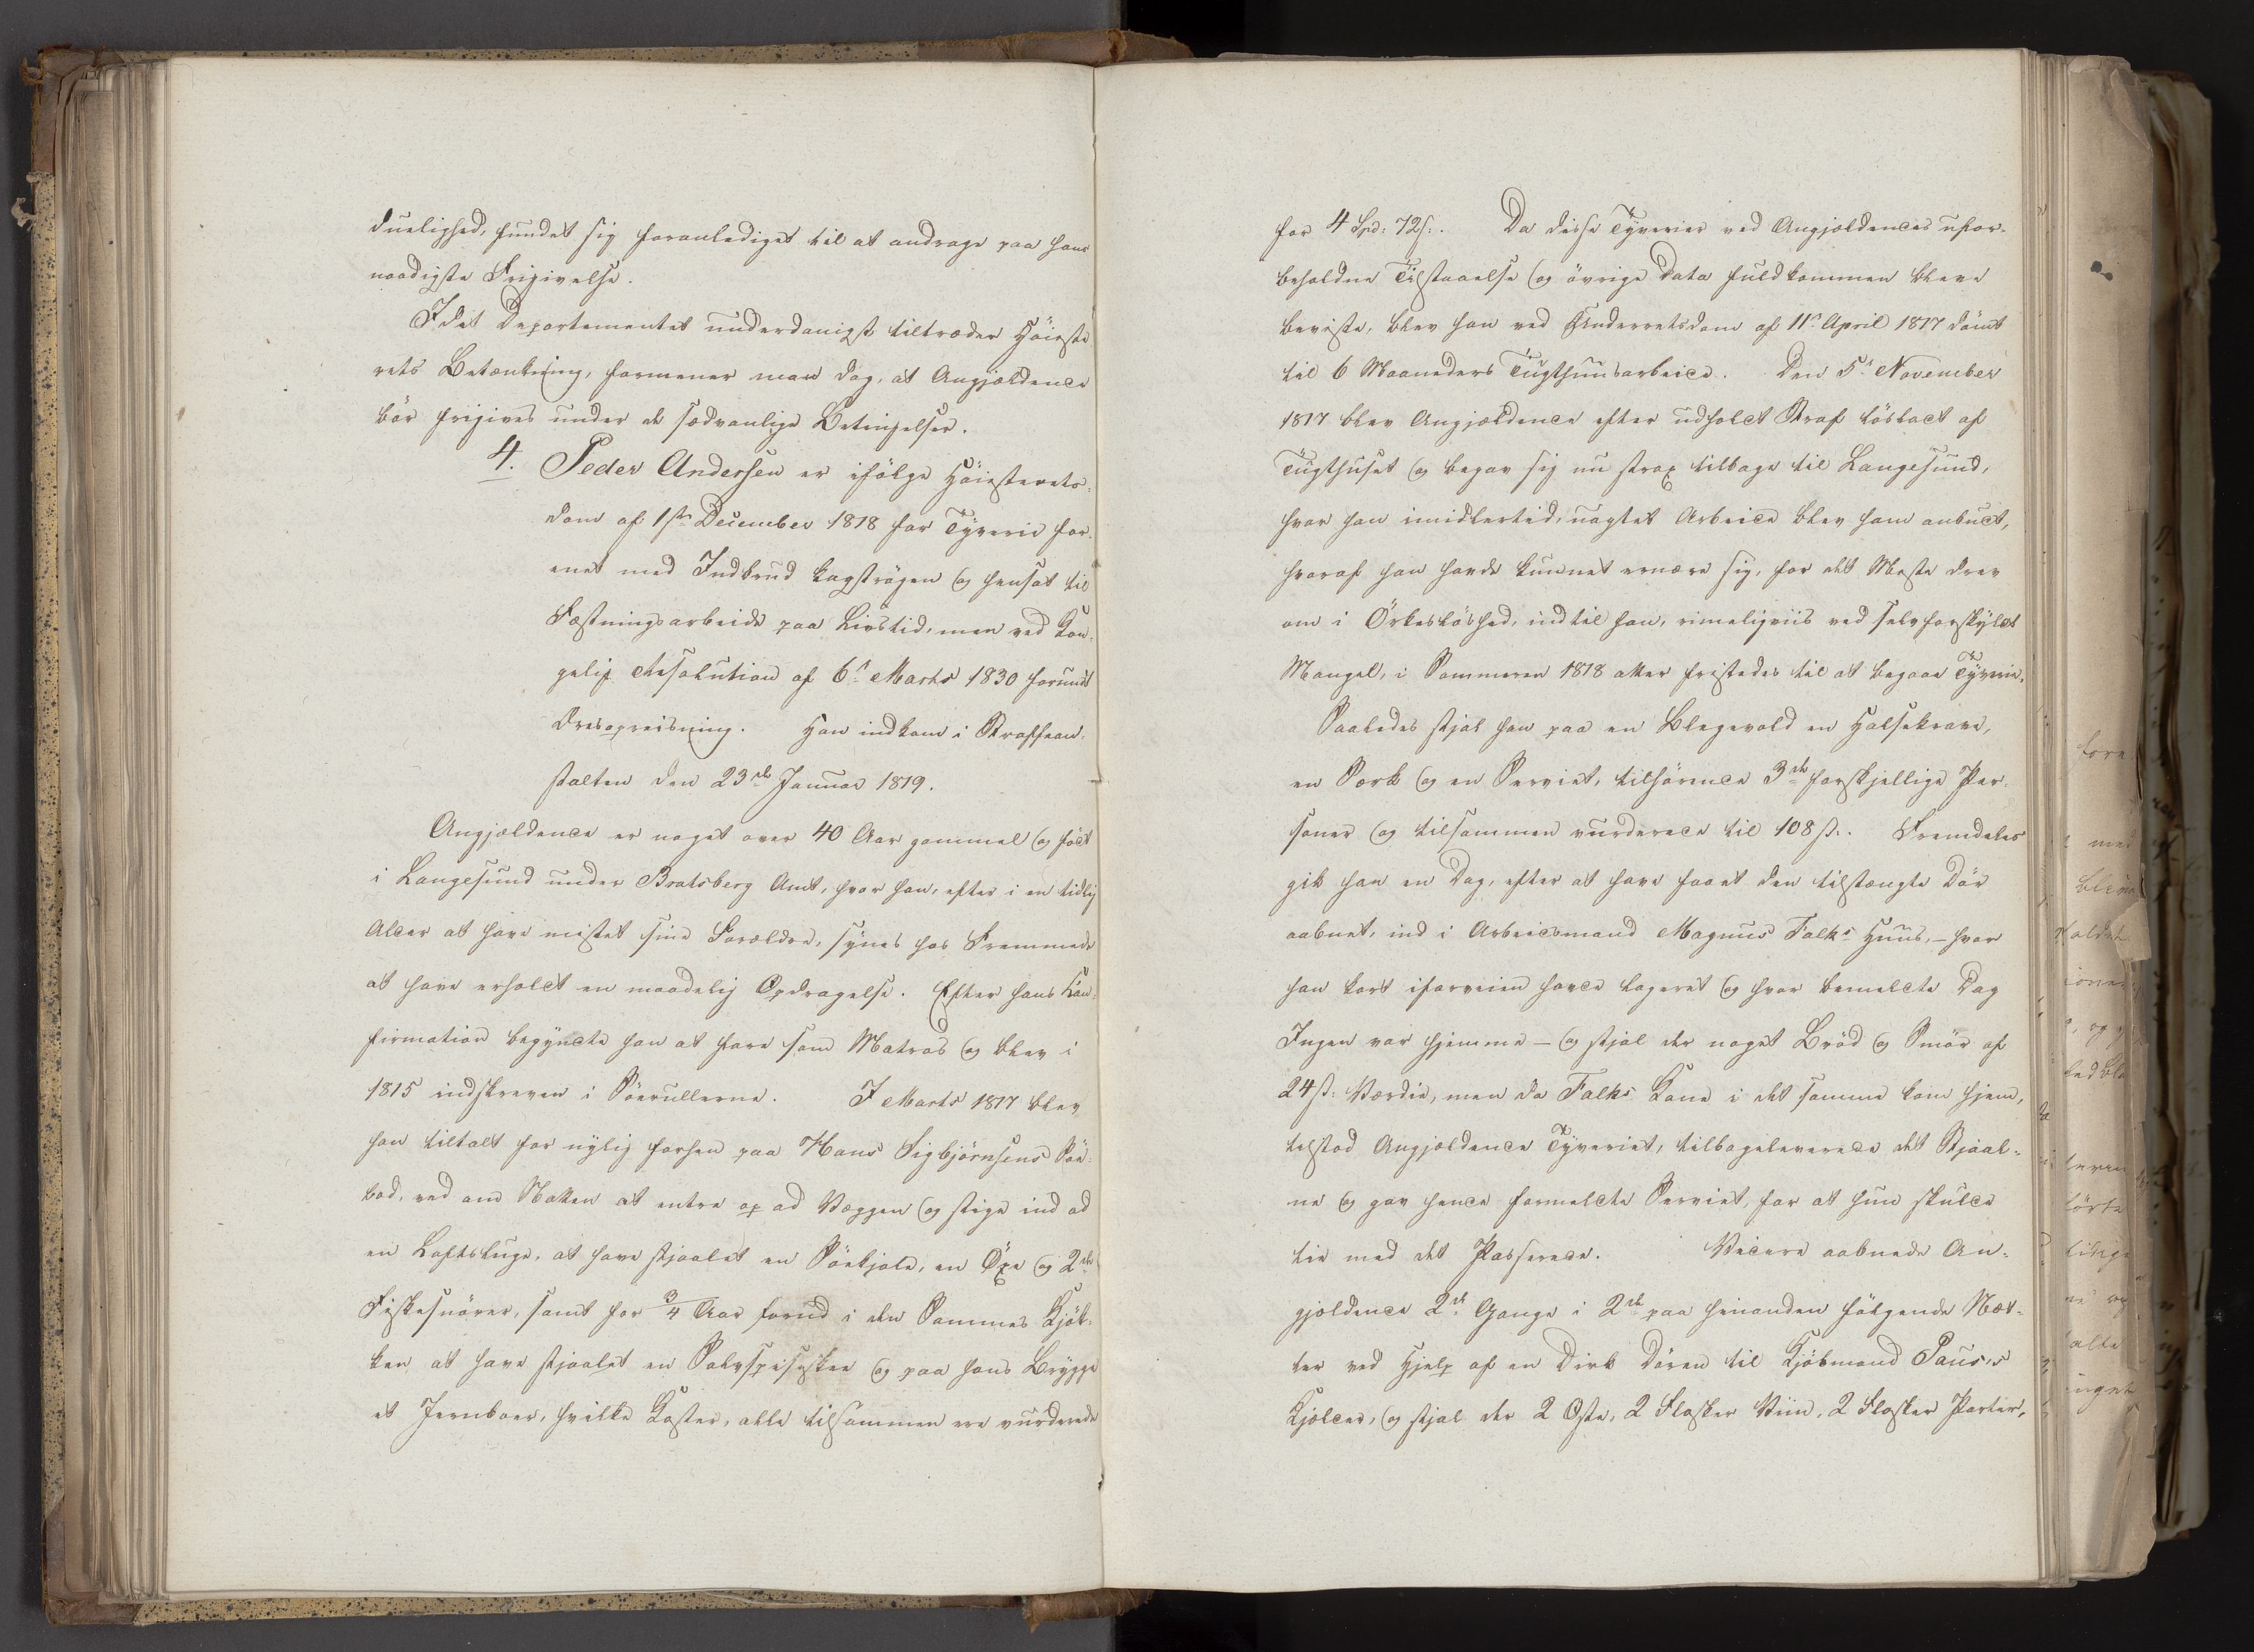 duelighed, fundet sig foranlediget til at andrage paa hans
naadigste Frigivelse.
Idet Departementet underdanigst tiltræder Høieste
rets Betænkning, formener man dog, at Angjældende
bör frigives under de sædvanlige Betingelser.
4. Peder Andersen er ifölge Höiesterets-
dom af 1ste December 1818 for Tyverie for-
enet med Indbrud kagströgen og hensat til
Fæstningsarbeide paa Livstid, men ved Kon-
gelig Resolution af 6te Marts 1830 forundt
Æresopreisning. Han indkom i Straffean-
stalten den 23de Januar 1819.
Angjældende er noget over 40 Aar gammel og födt
i Langesund under Bratsberg Amt, hvor han, efter i en tidlig
Alder at have mistet sine Forældre, synes hos Fremmede
at have erholdt en maadelig Opdragelse. Efter hans Kon-
firmation begyndte han at fare som Matros og blev i
1815 indskreven i Söerullerne. I Marts 1817 blev
han tiltalt for nylig forhen paa Hans Sigbjörnsens Söe-
bod, ved om Natten at entre op ad Væggen og stige ind ad
en Loftsluge, at have stjaalet en Söekjole, en Öxe og 2de
Fiskesnörer, samt for 3/4 Aar forud i den Sammes Kjök-
ken at have stjaalet en Sølvspiseskee og paa hans Brygge
et Jernboer, hvilke Koster, alle tilsammen ere vurderede
for 4 Spd: 72 ß:. Da disse Tyverier ved Angjældendes ufor-
beholdne Tilstaaelse og övrige Data fuldkommen bleve
beviste, blev han ved Underretsdom af 11te April 1817 dömt
til 6 Maaneders Tugthuusarbeide. Den 5te November
1817 blev Angjældende efter udholdt Straf lösladt af
Tugthuset og begav sig nu strax tilbage til Langesund,
hvor han imidlertid, uagtet Arbeide blev ham anbudt,
hvoraf han havde kunnet ernære sig, for det Meste drev
om i Örkeslöshed, indtil han, rimeligviis ved selvforskyldt
Mangel, i Sommeren 1818 atter fristedes til at begaae Tyverie.
Saaledes stjal han paa en Blegevold en Halsekrave,
en Særk og en Serviet, tilhörende 3de forskjellige Per-
soner og tilsammen vurderede til 108 ß:. Fremdeles
gik han en Dag, efter at have faaet den tilstængte Dör
aabnet, ind i Arbeidsmand Magnus Falks Huus, – hvor
han kort iforveien havde logeret og hvor bemeldte Dag
Ingen var hjemme – og stjal der noget Bröd og Smör af
24 ß: Værdie, men da Falks Kone i det samme kom hjem,
tilstod Angjældende Tyveriet, tilbageleverede det Stjaal-
ne og gav hende formeldte Serviet, for at hun skulde
tie med det Passerede. Videre aabnede An-
gjældende 2de Gange i 2de paa hinanden fölgende Næt-
ter ved Hjelp af en Dirk Dören til Kjöbmand Paus's
Kjelder, og stjal der 2 Oste, 2 Flasker Viin, 2 Flasker Porter,